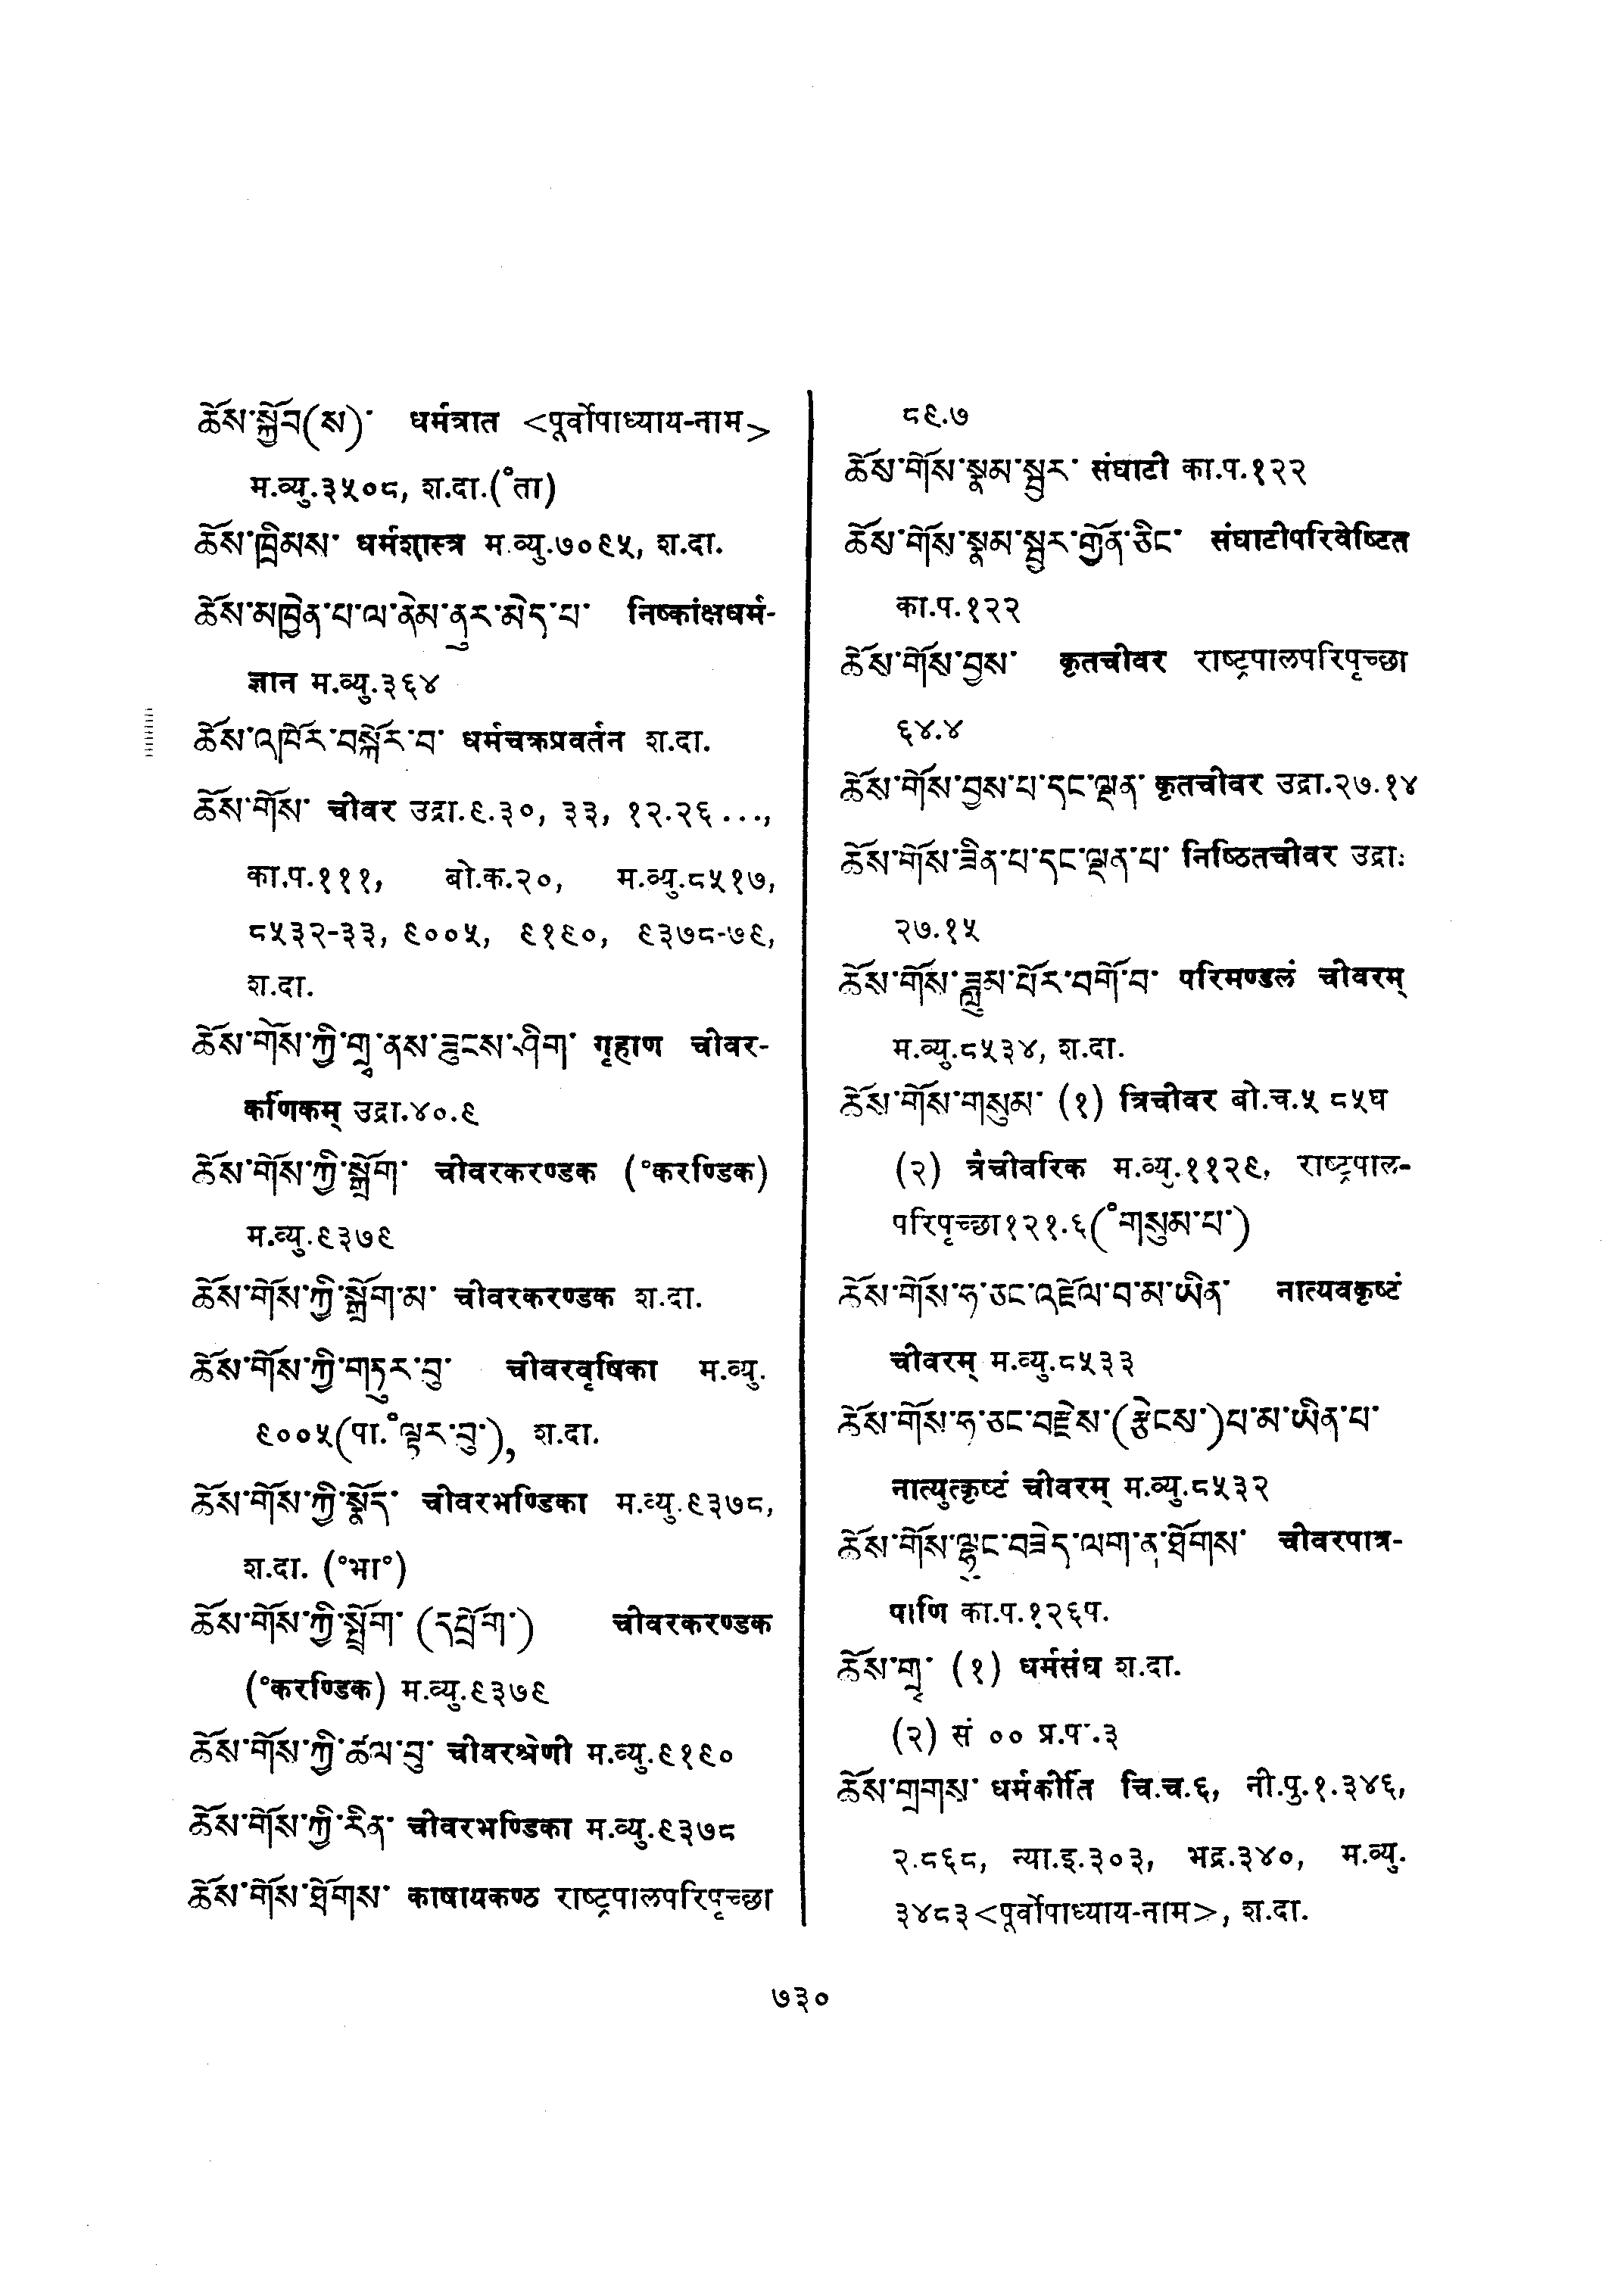 ཆོས་སྐྱོབ(ས)་ धर्मत्रात <पूर्वोपाध्याय-नाम>
म.व्यु.३५०८, श.दा.(°ता)
ཆོས་ཁྲིམས་ धर्मशास्त्र म.व्यु.७०९५, श.दा.
ཆོས་མཁྱེན་པ་ལ་ནེམ་ནུར་མེད་པ་ निष्कांक्षधर्म-
ज्ञान म.व्यु.३६४
ཆོས་འཁོར་བསྐོར་བ་ धर्मचक्रप्रवर्तन श.दा.
ཆོས་གོས་ चीवर उद्रा.९.३०, ३३, १२.२६ ...,
का.प.१११, बो.क.२०, म.व्यु.८५१७,
८५३२-३३, ९००५, ९१९०, ९३७८-७९,
श.दा.
ཆོས་གོས་ཀྱི་གྲྭ་ནས་ཟུངས་ཤིག་ गृहाण चीवर-
कर्णिकम् उद्रा.४०.९
ཆོས་གོས་ཀྱི་སྒྲོག་ चीवरकरण्डक (°करण्डिक)
म.व्यु.९३७९
ཆོས་གོས་ཀྱི་སྒྲོག་མ་ चीवरकरण्डक श.दा.
ཆོས་གོས་ཀྱི་གཏུར་བུ་ चीवरवृषिका म.व्यु.
९००५(पा.°ལྟར་བུ་), श.दा.
ཆོས་གོས་ཀྱི་སྣོད་ चीवरभण्डिका म.व्यु.९३७८,
श.दा. (°भा°)
ཆོས་གོས་ཀྱི་སྤྲོག་ (དཔྲོག་) चीवरकरण्डक
(°करण्डिक) म.व्यु.९३७९
ཆོས་གོས་ཀྱི་ཚལ་བུ་ चीवरश्रेणी म.व्यु.९१९०
ཆོས་གོས་ཀྱི་རིན་ चीवरभण्डिका म.व्यु.९३७८
ཆོས་གོས་ཐོགས་ काषायकण्ठ राष्ट्रपालपरिपृच्छा
८९.७
ཆོས་གོས་སྣམ་སྦྱར་ संघाटी का.प.१२२
ཆོས་གོས་སྣམ་སྦྱར་གྱོན་ཅིང་ संघाटीपरिवेष्टित
का.प.१२२
ཆོས་གོས་བྱས་ कृतचीवर राष्ट्रपालपरिपृच्छा
६४.४
ཆོས་གོས་བྱས་པ་དང་ལྡན་ कृतचीवर उद्रा.२७.१४
ཆོས་གོས་ཟིན་པ་དང་ལྡན་པ་ निष्ठितचीवर उद्रा.
२७.१५
ཆོས་གོས་ཟླུམ་པོར་བགོ་བ་ परिमण्डलं चीवरम्
म.व्यु.८५३४, श.दा.
ཆོས་གོས་གསུམ་ (१) त्रिचीवर बो.च.५ ८५घ
(२) त्रैचीवरिक म.व्यु.११२९, राष्ट्रपाल-
परिपृच्छा१२१.६(°གསུམ་པ་)
ཆོས་གོས་ཧ་ཅང་འཇོལ་བ་མ་ཡིན་ नात्यवकृष्टं
चीवरम् म.व्यु.८५३३
ཆོས་གོས་ཧ་ཅང་བརྫེས་(རྩེངས་)པ་མ་ཡིན་པ་
नात्युत्कृष्टं चीवरम् म.व्यु.८५३२
ཆོས་གོས་ལྷུང་བཟེད་ལག་ན་ཐོགས་ चीवरपात्र-
पाणि का.प.१२६प.
ཆོས་གྲྭ་ (१) धर्मसंघ श.दा.
(२) सं ०० प्र.प.३
ཆོས་གྲགས་ धर्मकीर्ति चि.च.६, नी.पु.१.३४६,
२.८६८, न्या.इ.३०३, भद्र.३४०, म.व्यु.
३४८३<पूर्वोपाध्याय-नाम>, श.दा.
७३०